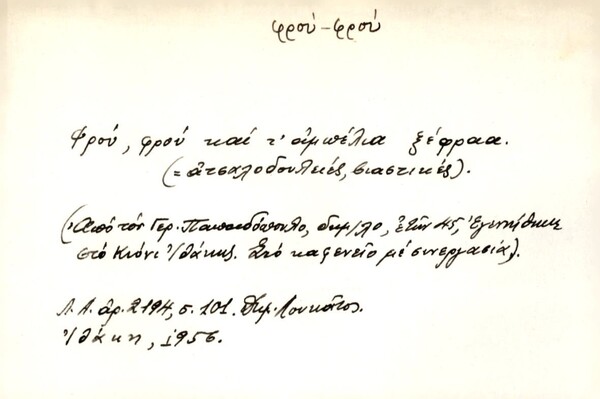 φρού-φρού
Φρού, φρού καί τ' ἀμπέλια ξέφραα.
(= ἀτσαλοδουλειές, βιαστικές).
(Ἀπό τόν Γερ. Παπαδόπουλο, δημ/λο, ἐτῶν 45, Ἐγεννήθηκε
στό Κιόνι Ἰθάκης. Στό καφενεῖο μέ συνεργασία).
Λ.Α. ἀρ. 2194, σ. 101. Δημ. Λουκᾶτος.
Ἰθάκη, 1956.